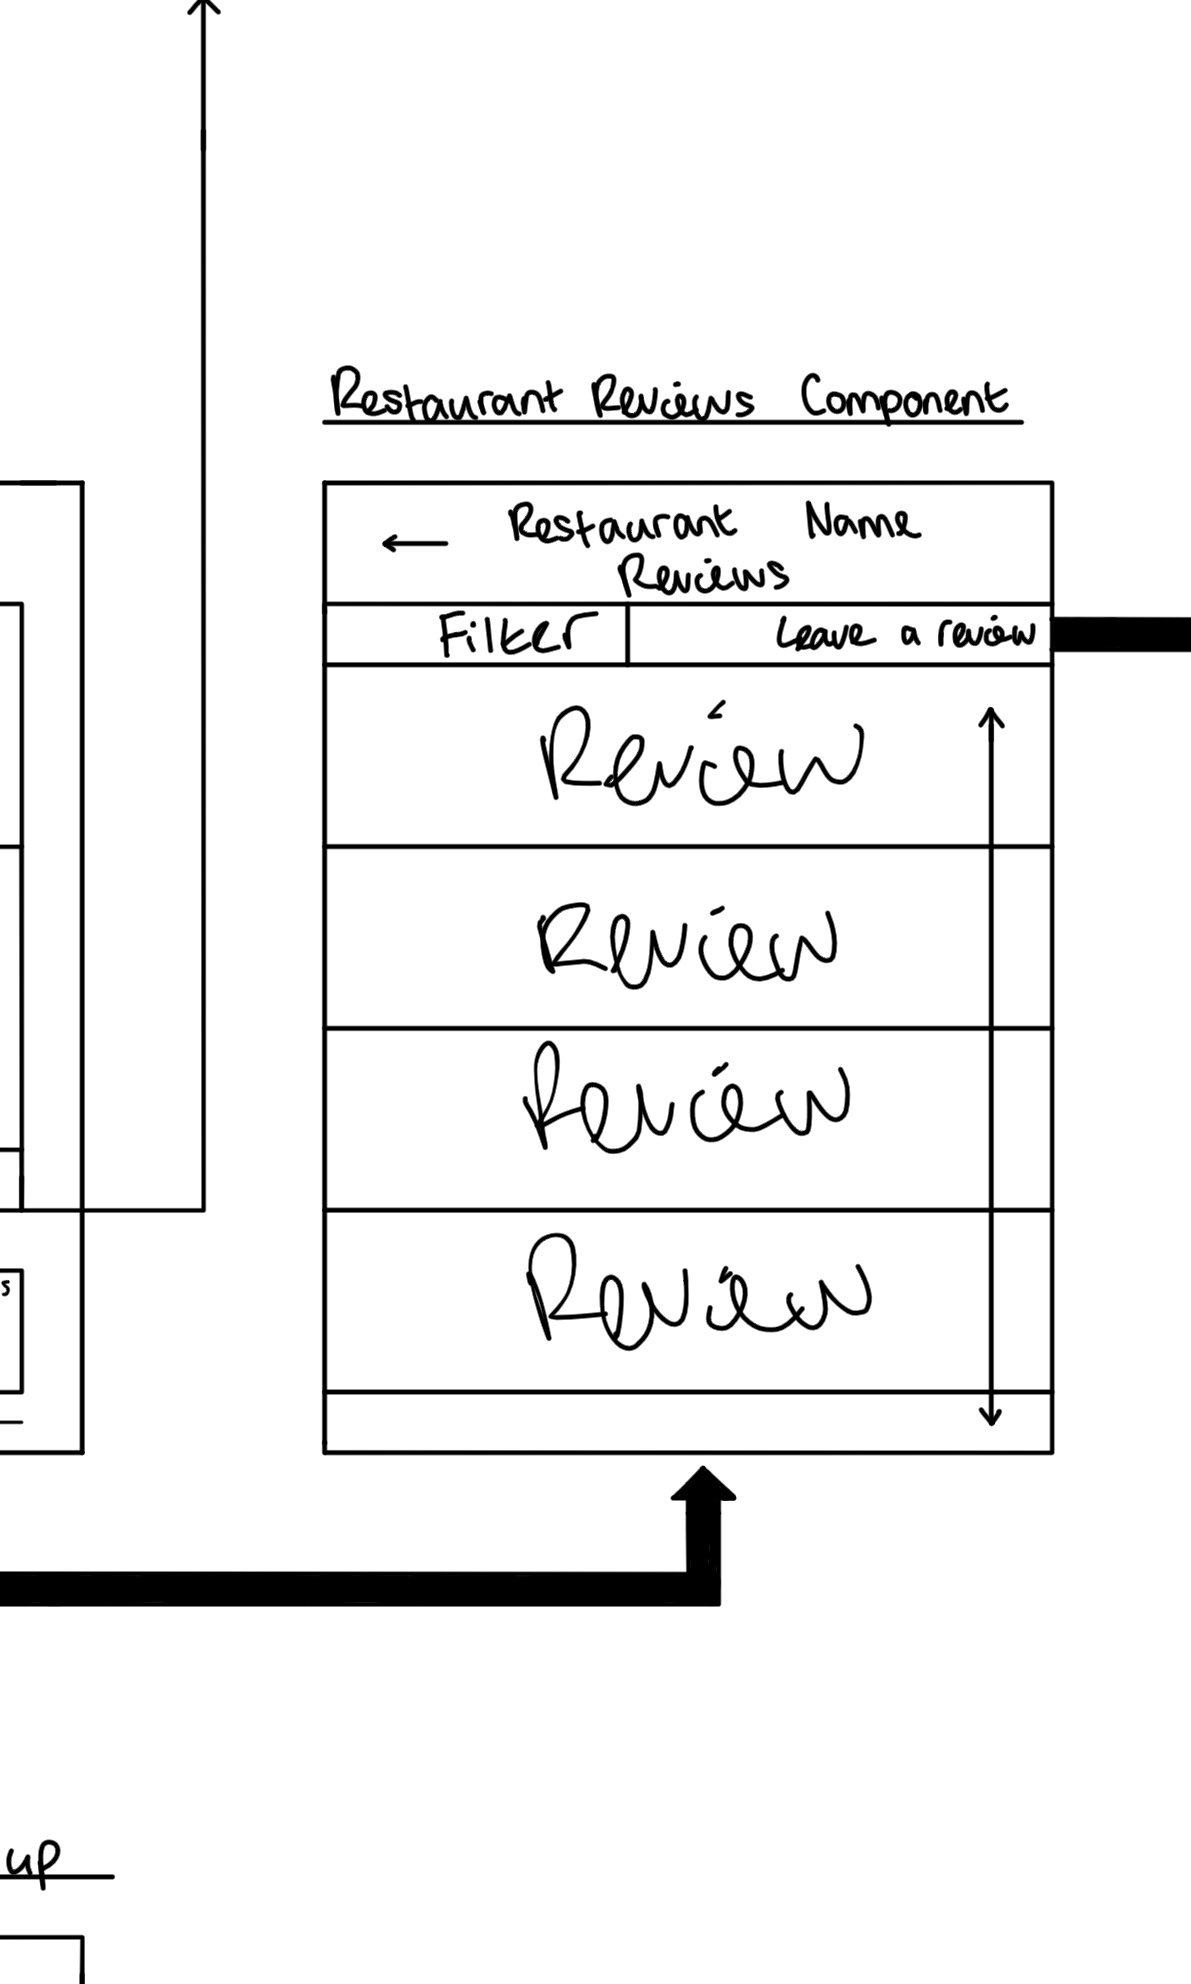 Restaurant Reviews Component
Restaurant Name
Reviews
Filter
Leave a review
Review
Review
Review
Review
s
up